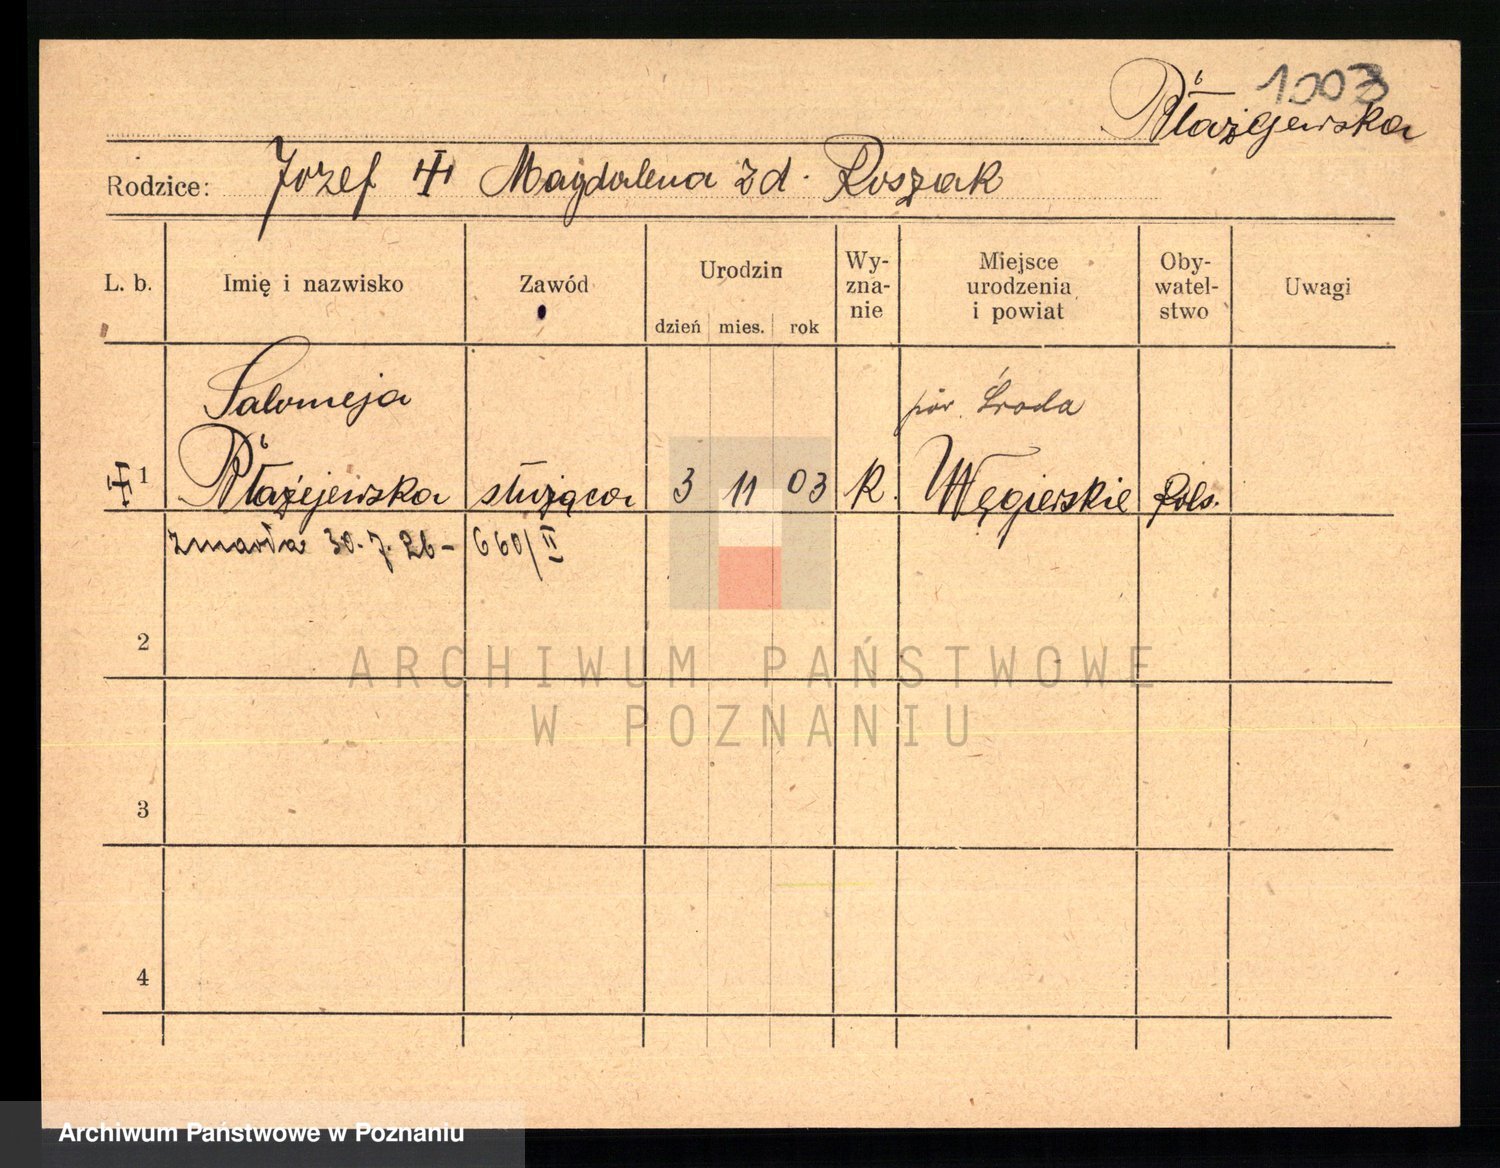 1003
Błażejewska
Rodzice: Józef Magdalena zd. Roszak
L. b. Imię i nazwisko Zawód Urodzin dzień mies. rok Wy- zna- nie Miejsce urodzenia i powiat Oby- watel- stwo Uwagi
Salomeja pow. Środa
1 Błażejewska służąca 3 11 03 R. Węgierskie Pols.
zmarła 30.7.26 - 660/II
2
ARCHIWUM PAŃSTWOWE
W POZNANIU
3
4
Archiwum Państwowe w Poznaniu